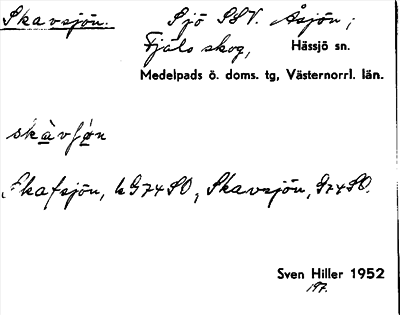 Skavsjön. Sjö SSV. Åsjön;
Fjäls skog, Hässjö sn.
Medelpads ö. doms. tg, Västernorrl. län.
skàvʃø̀n
Skafsjön, kG74SO, Skavsjön, G74SO.
Sven Hiller 1952
197.